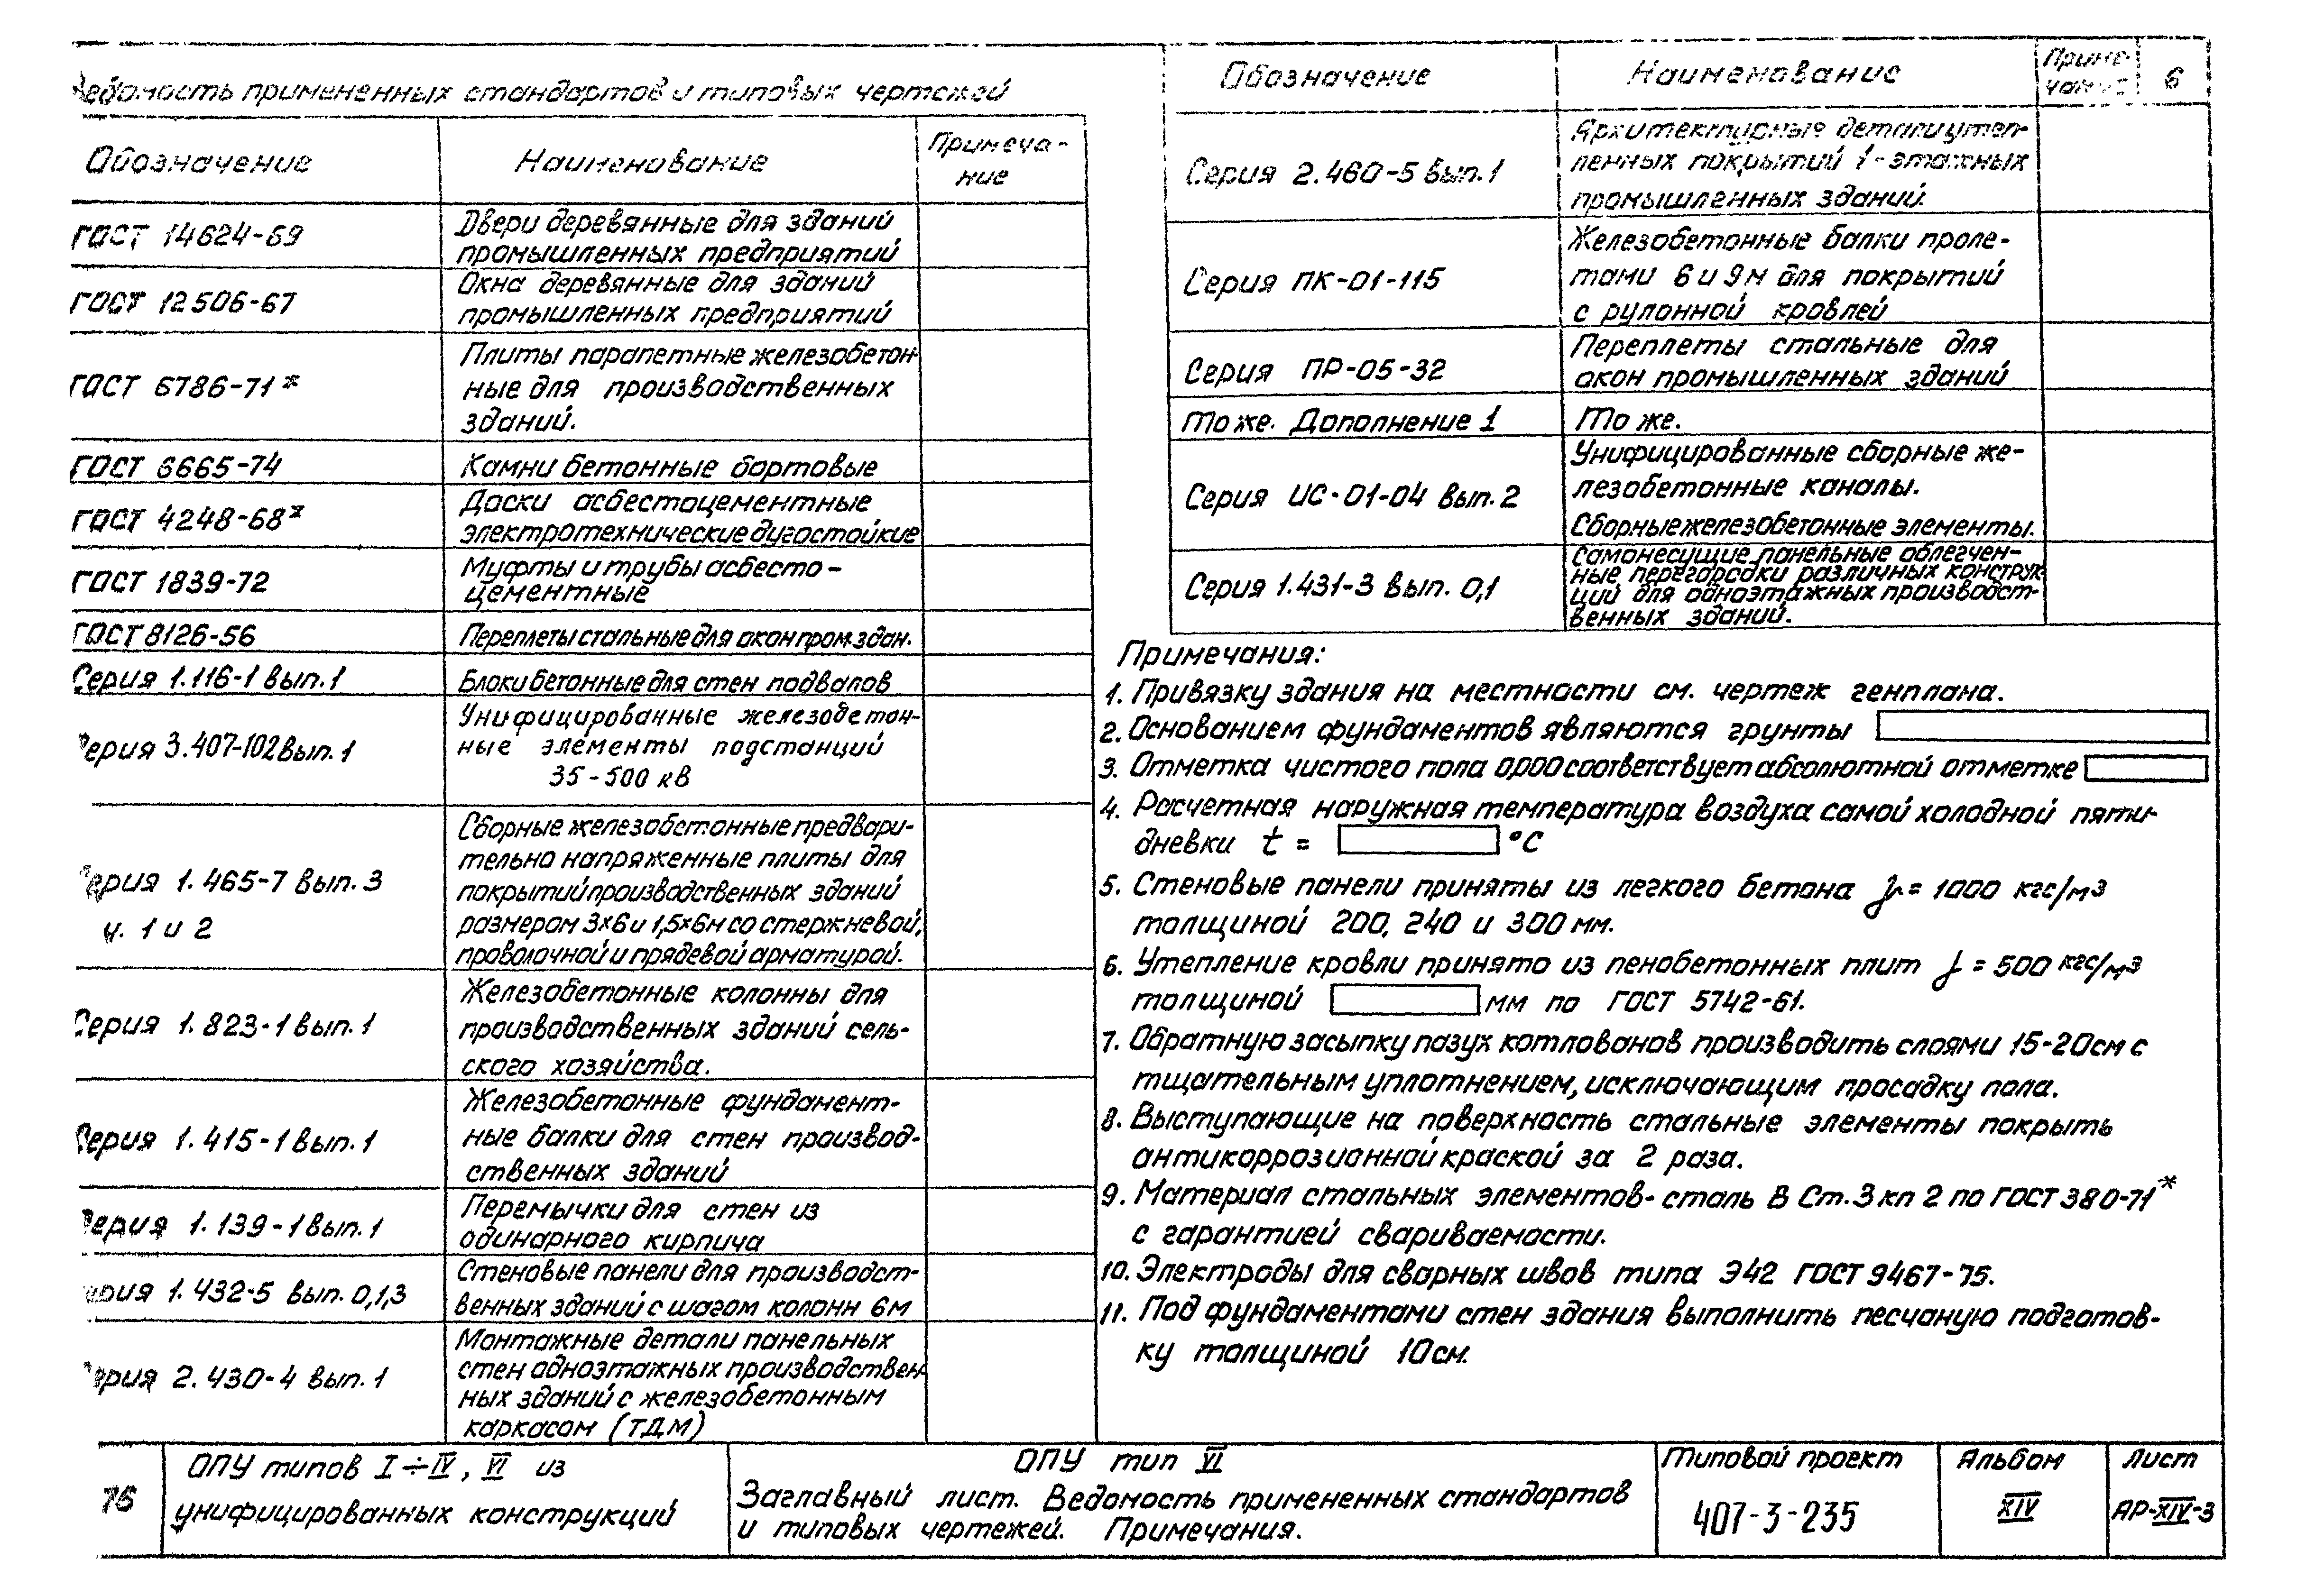 Ведомость примененных стандартов и типовых чертежей
Обозначение
Наименование
Примеча-
ние
ГОСТ 14624-69
Двери деревянные для зданий
промышленных предприятий
ГОСТ 12506-67
Окна деревянные для зданий
промышленных предприятий
ГОСТ 6786-71*
Плиты парапетные железобетон-
ные для производственных
зданий.
ГОСТ 6665-74
Камни бетонные бортовые
ГОСТ 4248-68*
Доски асбестоцементные
электротехнические дугостойкие
ГОСТ 1839-72
Муфты и трубы асбесто-
цементные
ГОСТ 8126-56
Переплеты стальные для окон пром.здан.
Серия 1.116-1 вып.1
Блоки бетонные для стен подвалов
Серия 3.407-102 вып.1
Унифицированные железобетон-
ные элементы подстанций
35-500 кВ
Серия 1.465-7 вып.3
ч. 1 и 2
Сборные железобетонные предвари-
тельно напряженные плиты для
покрытий производственных зданий
размером 3×6 и 1,5×6м со стержневой,
проволочной и прядевой арматурой.
Серия 1.823-1 вып.1
Железобетонные колонны для
производственных зданий сель-
ского хозяйства.
Серия 1.415-1 вып.1
Железобетонные фундамент-
ные балки для стен производ-
ственных зданий
Серия 1.139-1 вып.1
Перемычки для стен из
одинарного кирпича
Серия 1.432-5 вып.0,1,3
Стеновые панели для производст-
венных зданий с шагом колонн 6м
Серия 2.430-4 вып.1
Монтажные детали панельных
стен одноэтажных производствен-
ных зданий с железобетонным
каркасом (ТДМ)
Обозначение
Наименование
Приме-
чание
6
Серия 2.460-5 вып.1
Архитектурные детали утеп-
ленных покрытий 1-этажных
промышленных зданий.
Серия ПК-01-115
Железобетонные балки проле-
тами 6 и 9м для покрытий
с рулонной кровлей
Серия ПР-05-32
Переплеты стальные для
окон промышленных зданий
То же. Дополнение 1
То же.
Серия ИС-01-04 вып.2
Унифицированные сборные же-
лезобетонные каналы.
Сборные железобетонные элементы.
Серия 1.431-3 вып. 0,1
Самонесущие панельные облегчен-
ные перегородки различных конструк-
ций для одноэтажных производст-
венных зданий.
Примечания:
1. Привязку здания на местности см. чертеж генплана.
2. Основанием фундаментов являются грунты
3. Отметка чистого пола 0,000 соответствует абсолютной отметке
4. Расчетная наружная температура воздуха самой холодной пяти-
дневки t = °C
5. Стеновые панели приняты из легкого бетона γ = 1000 кгс/м3
толщиной 200, 240 и 300 мм.
6. Утепление кровли принято из пенобетонных плит γ = 500 кгс/м3
толщиной мм по ГОСТ 5742-61.
7. Обратную засыпку пазух котлованов производить слоями 15-20см с
тщательным уплотнением, исключающим просадку пола.
8. Выступающие на поверхность стальные элементы покрыть
антикоррозионной краской за 2 раза.
9. Материал стальных элементов- сталь В Ст.3 кп 2 по ГОСТ 380-71*
с гарантией свариваемости.
10. Электроды для сварных швов типа Э42 ГОСТ 9467-75.
11. Под фундаментами стен здания выполнить песчаную подготов-
ку толщиной 10см.
76
ОПУ типов I÷IV, VI из
унифицированных конструкций
ОПУ тип VI
Заглавный лист. Ведомость примененных стандартов
и типовых чертежей. Примечания.
Типовой проект
407-3-235
Альбом
XIV
Лист
АР-XIV-3